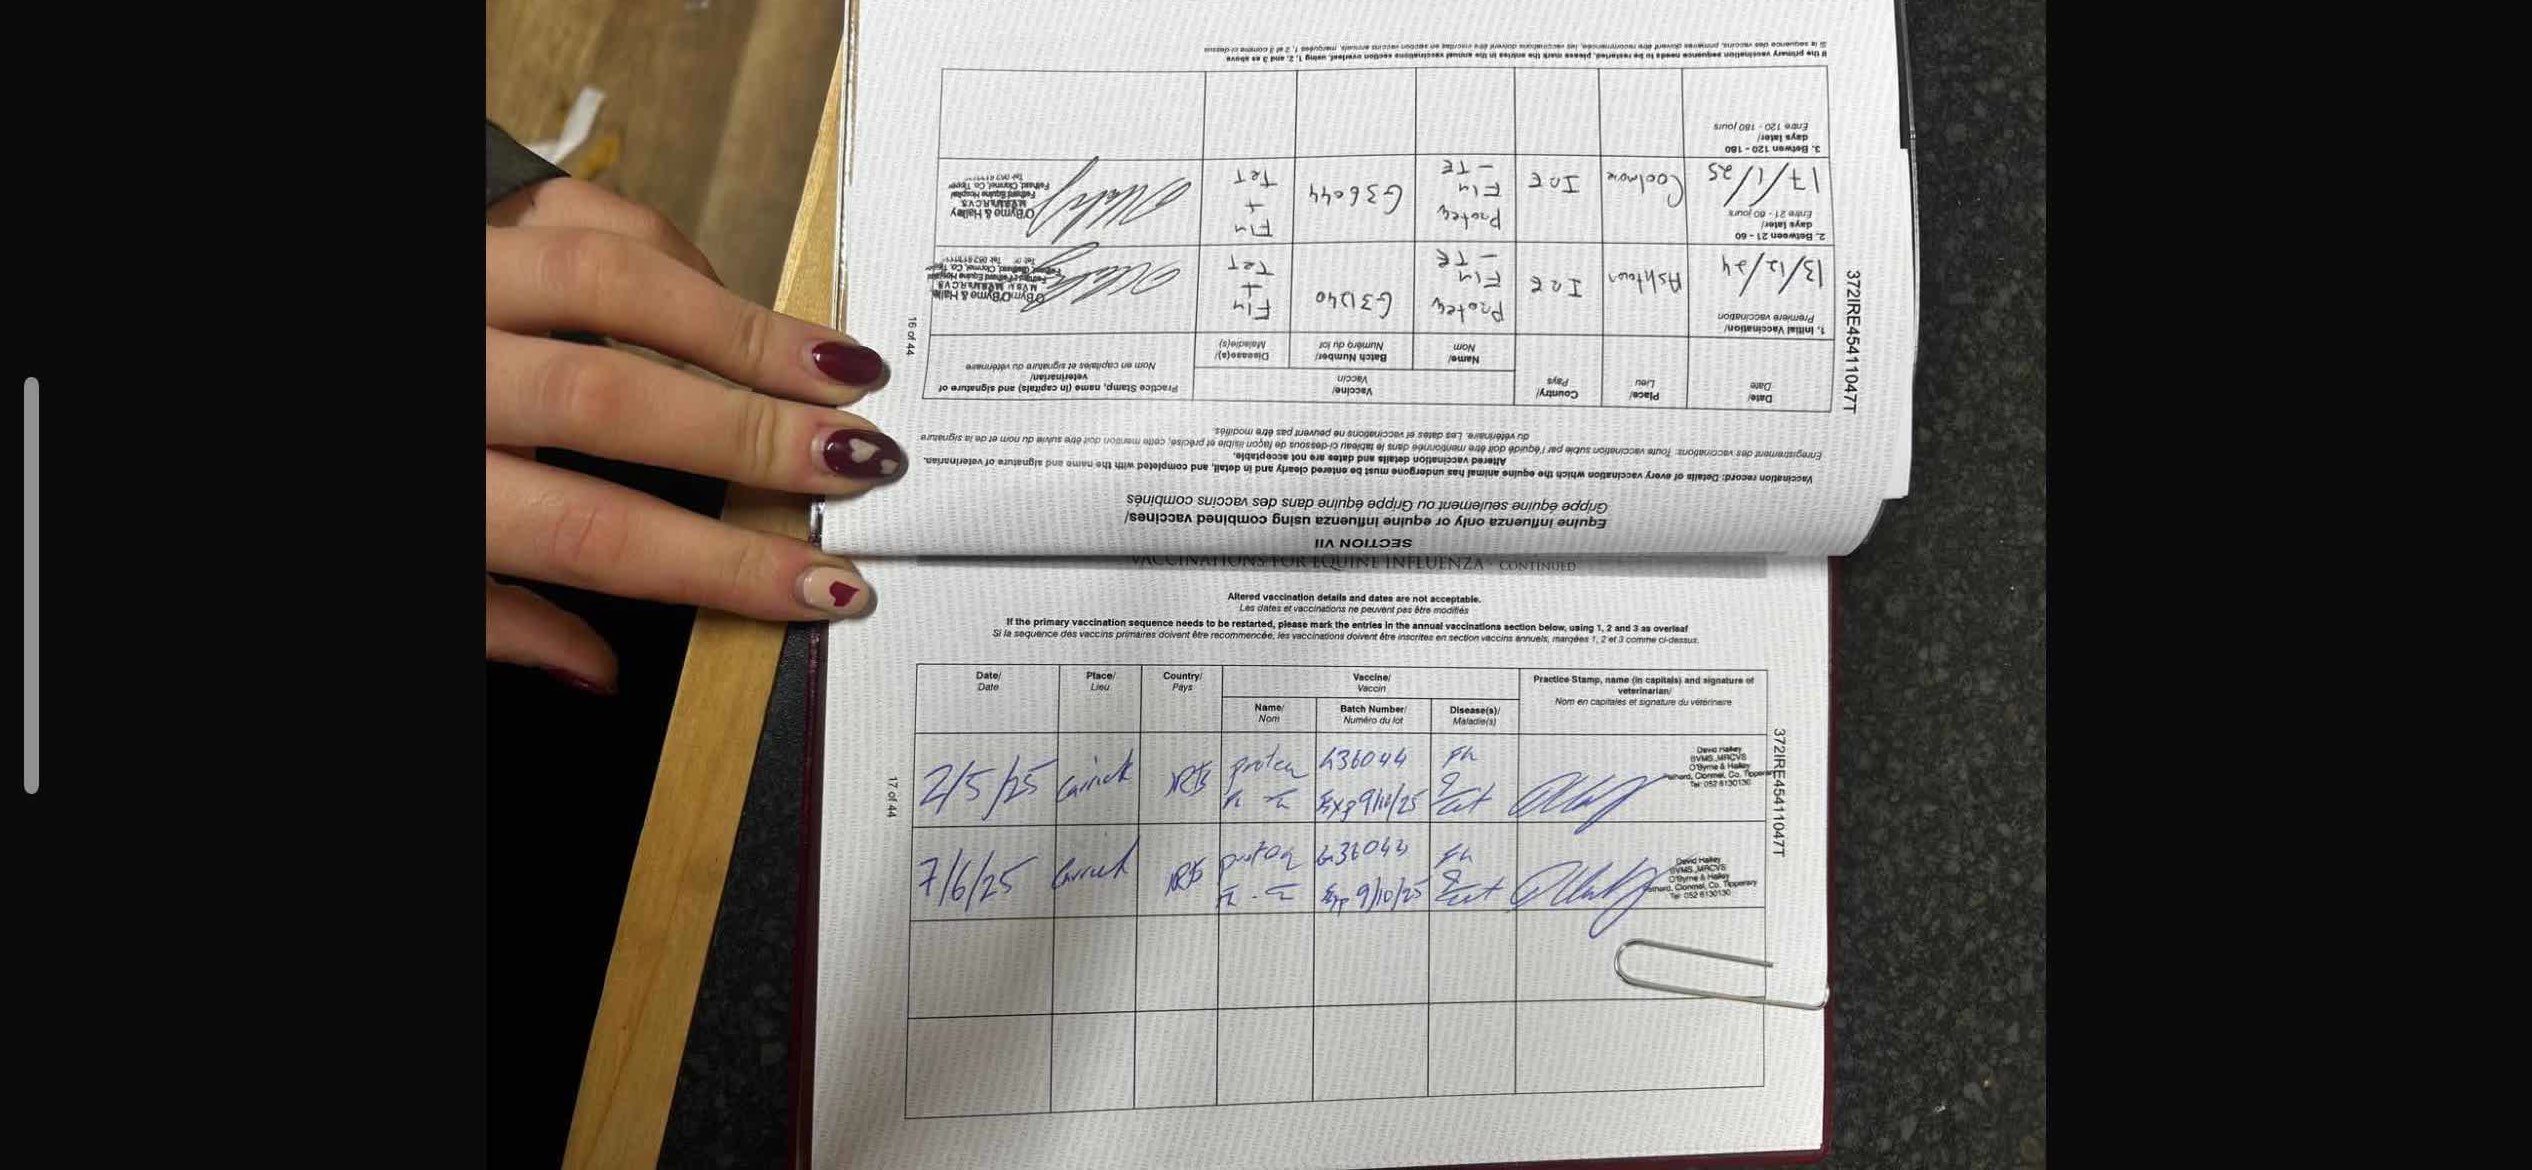 SECTION VII
Equine influenza only or equine influenza using combined vaccines/
Grippe équine seulement ou Grippe équine dans des vaccins combinés
Vaccination record: Details of every vaccination which the equine animal has undergone must be entered clearly and in detail, and completed with the name and signature of veterinarian.
Altered vaccination details and dates are not acceptable.
Enregistrement des vaccinations: Toute vaccination subie par l'équidé doit être mentionnée dans le tableau ci-dessous de façon lisible et précise, cette mention doit être suivie du nom et de la signature
du vétérinaire. Les dates et vaccinations ne peuvent pas être modifiés.
Date/
Date
Place/
Lieu
Country/
Pays
Vaccine/
Vaccin
Name/
Nom
Batch Number/
Numéro du lot
Disease(s)/
Maladie(s)
Practice Stamp, name (in capitals) and signature of
veterinarian/
Nom en capitales et signature du vétérinaire
1. Initial Vaccination/
Première vaccination
13/12/24
Ashtown
IRE
Proteq
Flu
- TE
Flu
+
TeT
O'Byrne & Halley
2. Between 21 - 60
days later/
Entre 21 - 60 jours
17/1/25
Coolmore
IRE
Proteq
Flu
- TE
G36044
Flu
+
TeT
O'Byrne & Halley
M.R.C.V.S
Fethard Equine Hospital
Fethard, Clonmel, Co. Tipper
3. Betwen 120 - 180
days later/
Entre 120 - 180 jours
If the primary vaccination sequence needs to be restarted, please mark the entries in the annual vaccinations section overleaf, using 1, 2, and 3 as above
Si la sequence des vaccins, primaires doivent être recommencée, les vaccinations doivent être inscrites en section vaccins annuels, marquées 1, 2 et 3 comme ci-dessus
16 of 44
372IRE45411047T
VACCINATIONS FOR EQUINE INFLUENZA - CONTINUED
Altered vaccination details and dates are not acceptable.
Les dates et vaccinations ne peuvent pas être modifiés
If the primary vaccination sequence needs to be restarted, please mark the entries in the annual vaccinations section below, using 1, 2 and 3 as overleaf
Si la sequence des vaccins primaires doivent être recommencée, les vaccinations doivent être inscrites en section vaccins annuels, marqées 1, 2 et 3 comme ci-dessus.
Date/
Date
Place/
Lieu
Country/
Pays
Vaccine/
Vaccin
Name/
Nom
Batch Number/
Numéro du lot
Disease(s)/
Maladie(s)
Practice Stamp, name (in capitals) and signature of
veterinarian/
Nom en capitales et signature du vétérinaire
2/5/25
Carrick
IRE
proteq
G36044
Exp 9/10/25
Flu
&
Tet
David Halley
BVMS MRCVS
O'Byrne & Halley
Fethard, Clonmel, Co. Tipperary
Tel: 052 6130130
7/6/25
Carrick
IRE
proteq
G36043
Exp 9/10/25
Flu
&
Tet
David Halley
BVMS MRCVS
O'Byrne & Halley
Fethard, Clonmel, Co. Tipperary
Tel: 052 6130130
17 of 44
372IRE45411047T